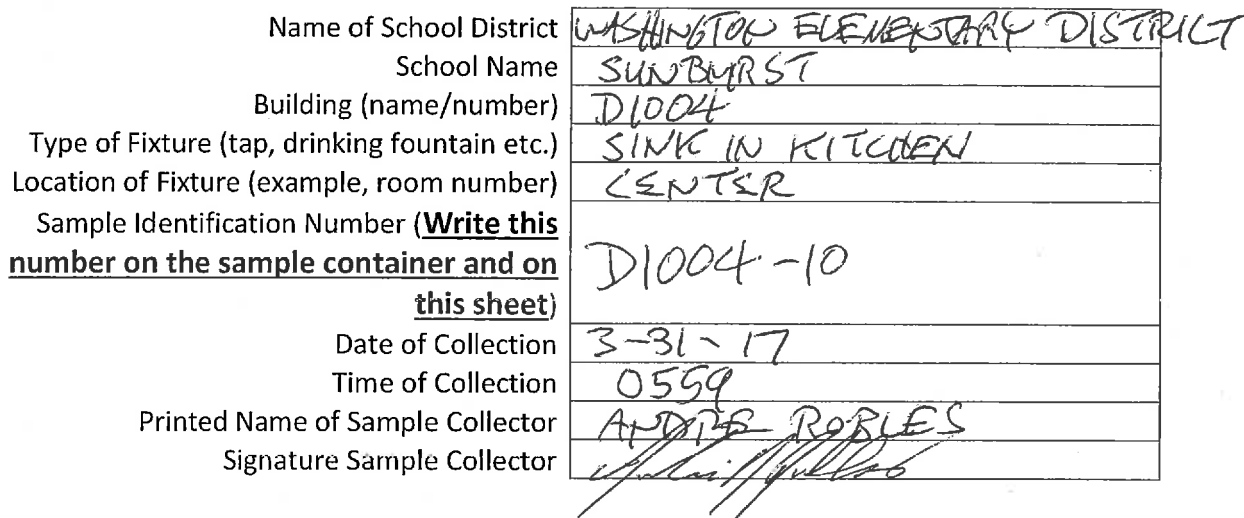 Name of School District WASHINGTON ELEMENTARY DISTRICT
School Name SUNBURST
Building (name/number) D1004
Type of Fixture (tap, drinking fountain etc.) SINK IN KITCHEN
Location of Fixture (example, room number) CENTER
Sample Identification Number (Write this
number on the sample container and on
this sheet) D1004-10
Date of Collection 3-31-17
Time of Collection 0559
Printed Name of Sample Collector ANDRE ROBLES
Signature Sample Collector